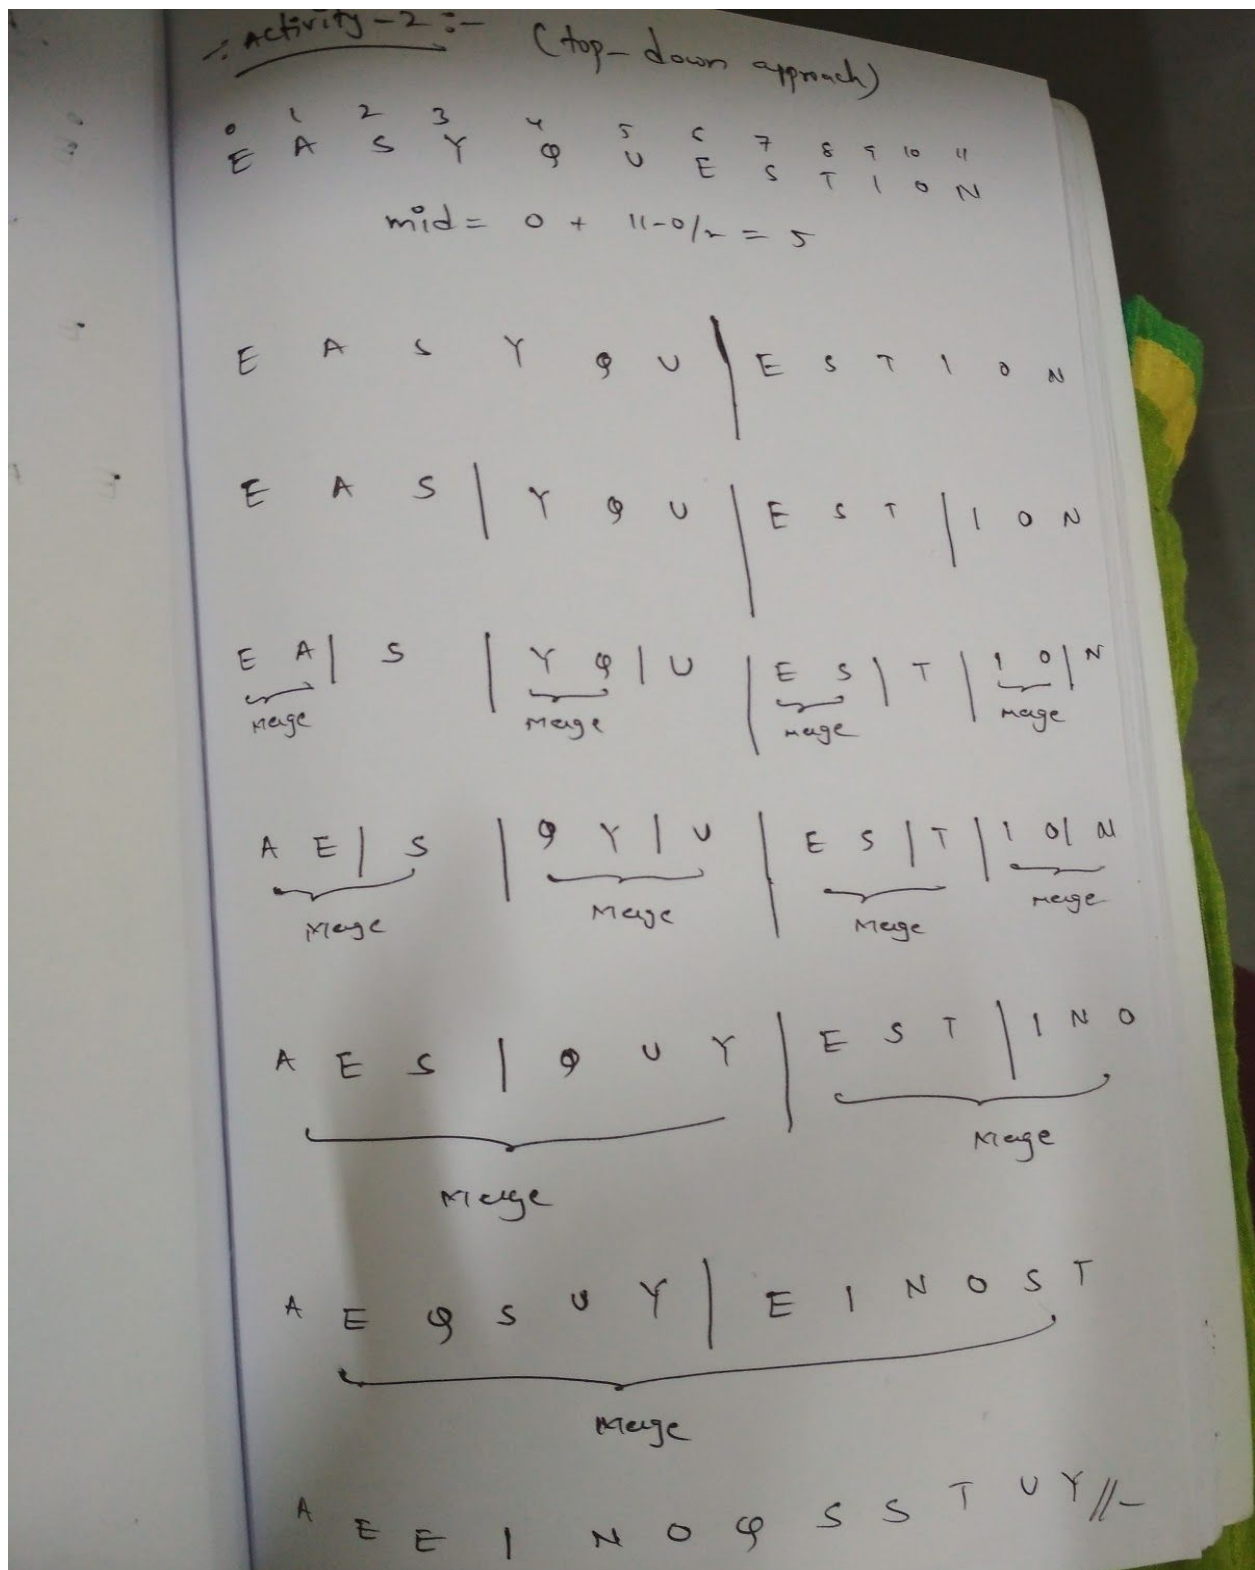 :- Activity - 2 :- (top-down approach)
0 1 2 3 4 5 6 7 8 9 10 11
E A S Y Q U E S T I O N
mid = 0 + 11-0/2 = 5
E A S Y Q U | E S T I O N
E A S | Y Q U | E S T | I O N
E A | S | Y Q | U | E S | T | I O | N
Merge Merge Merge Merge
A E | S | Q Y | U | E S | T | I O | N
Merge Merge Merge Merge
A E S | Q U Y | E S T | I N O
Merge Merge
A E Q S U Y | E I N O S T
Merge
A E E I N O Q S S T U Y //-